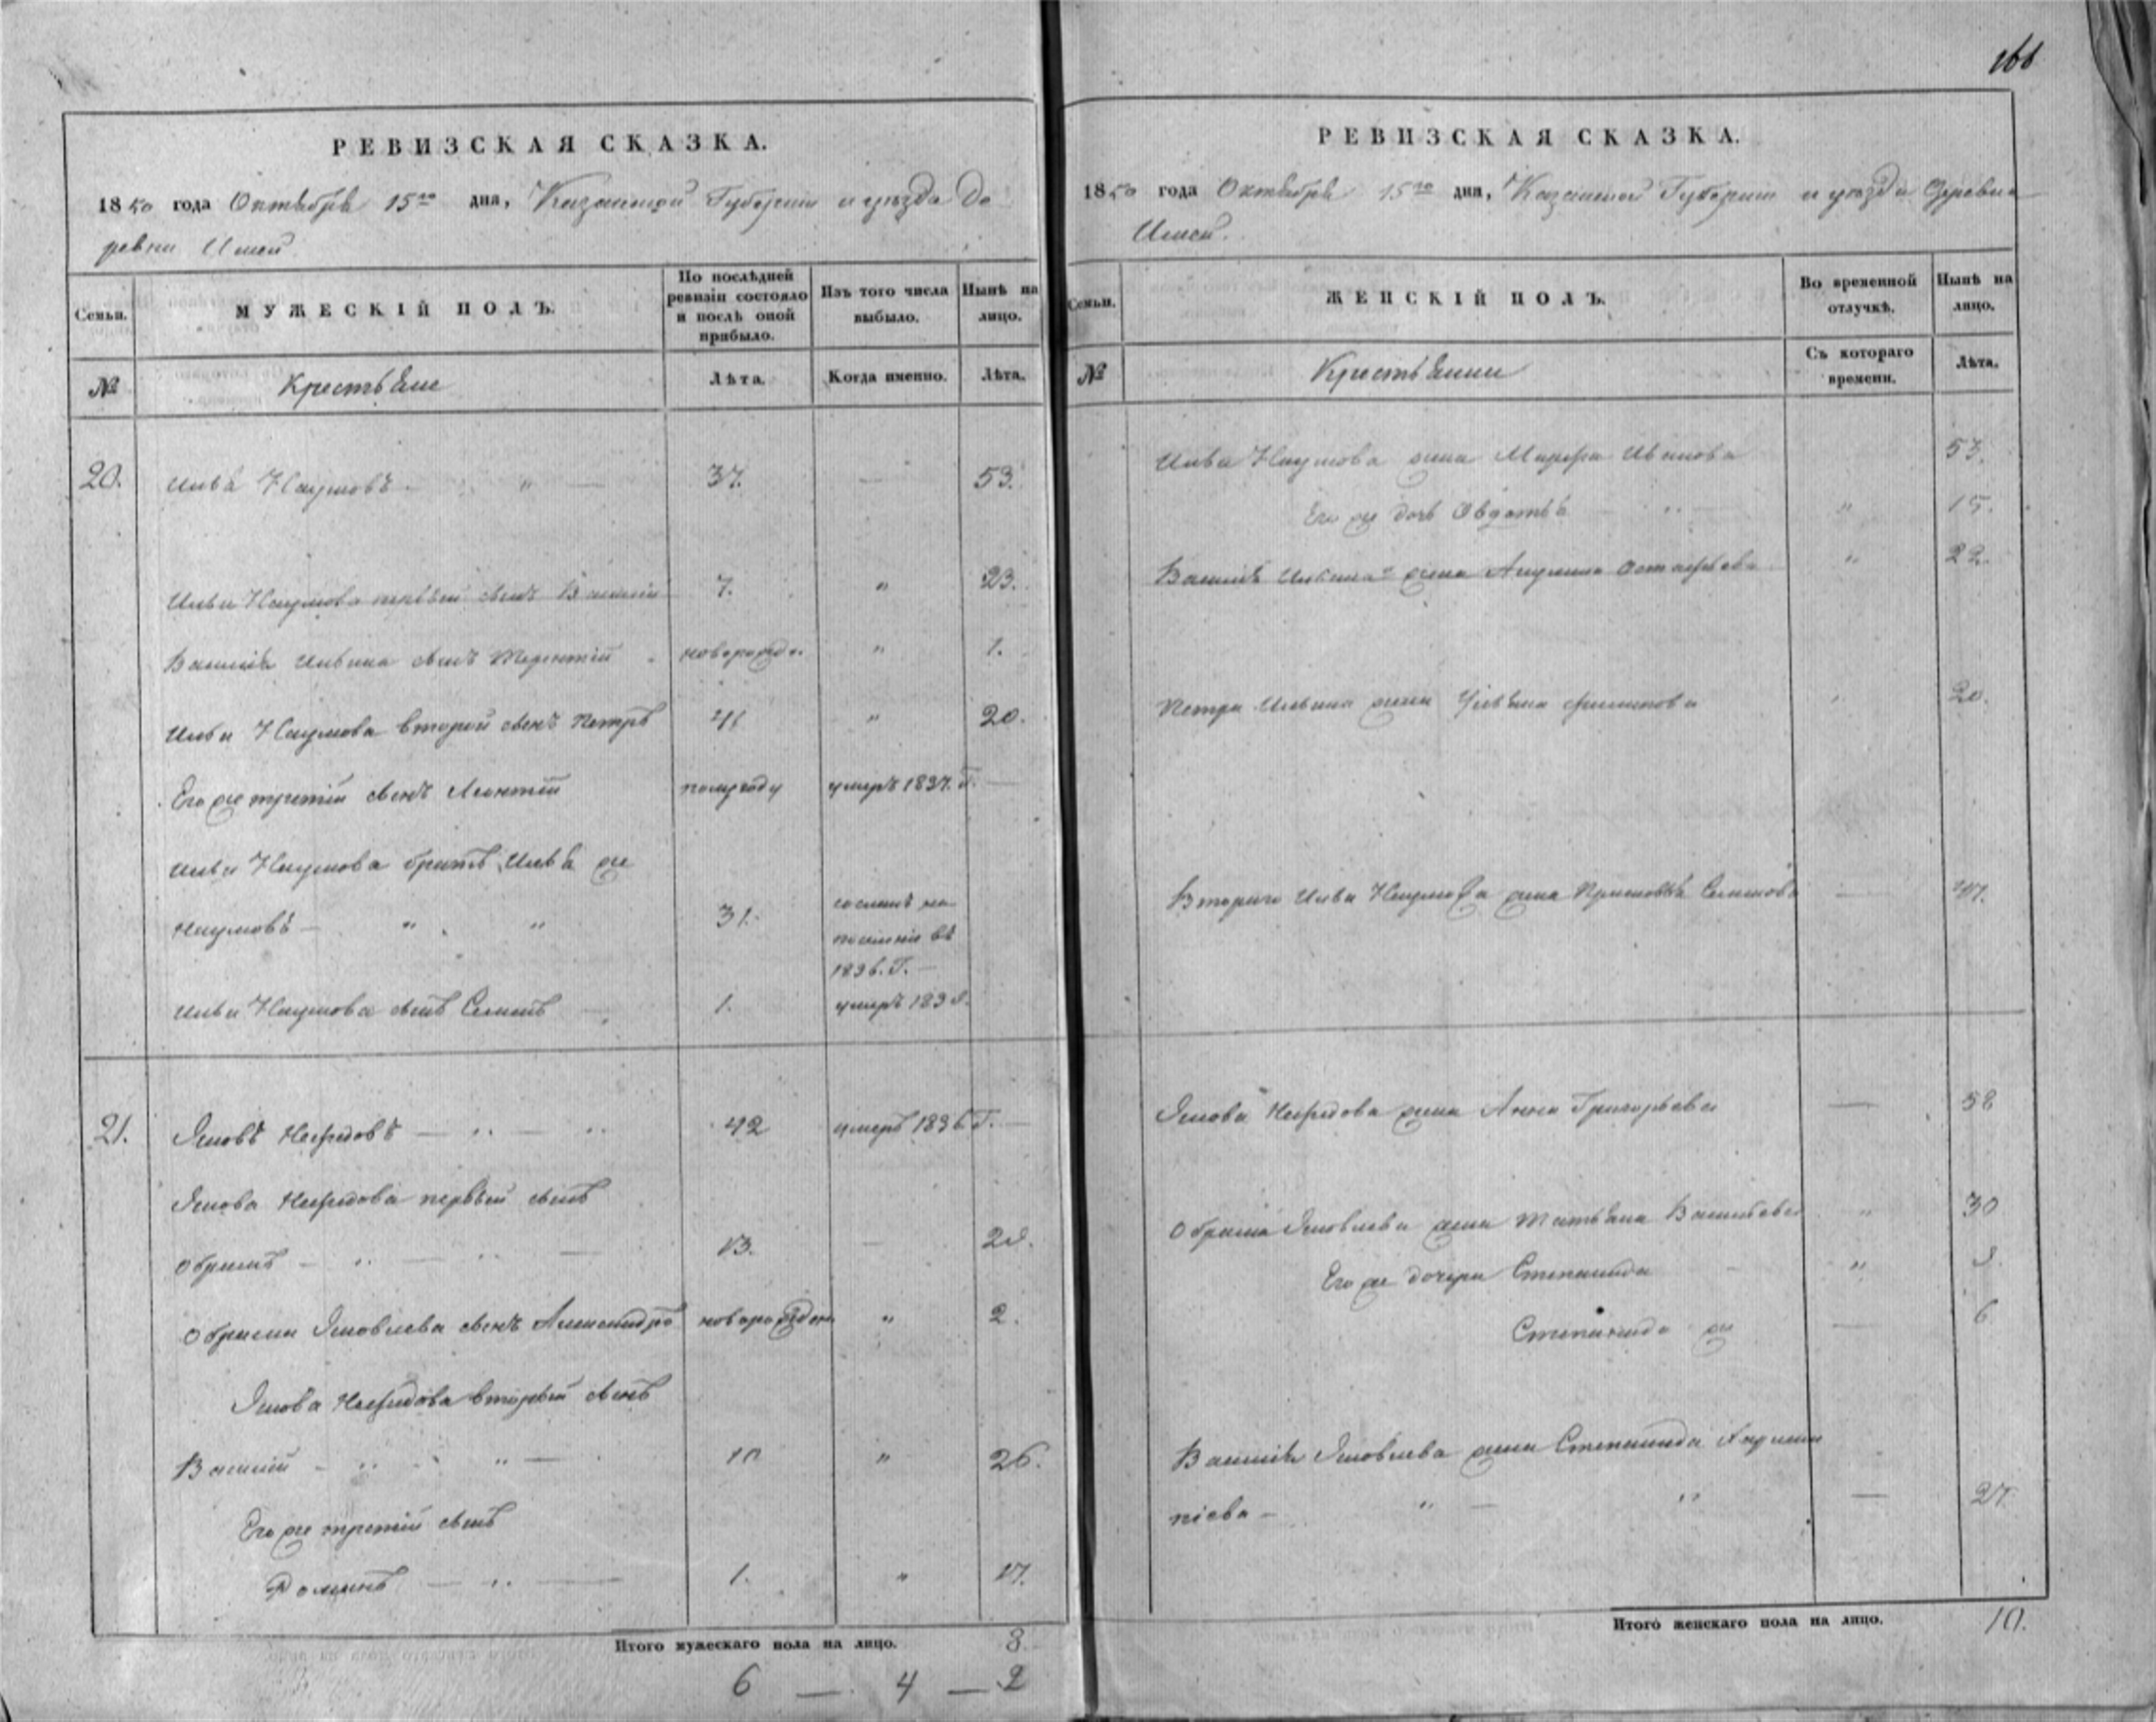 166
РЕВИЗСКАЯ СКАЗКА.
1850 года Октября 15го дня, Казанской Губернии и уезда де
ревни
Семьи.
МУЖЕСКІЙ ПОЛЪ.
По послѣдней ревизіи состояло и послѣ оной прибыло.
Изъ того числа выбыло.
Нынѣ на лицо.
№
Крестьяне
Лѣта.
Когда именно.
Лѣта.
20. Илья Наумовъ — " — 37. — 53.
Ильи Наумова первый сынъ Василій 7. " 23.
Василія Ильина сынъ Терентій новорожд. " 1.
Ильи Наумова второй сынъ Петръ 4 " 20.
Его же третій сынъ Леонтій полугоду умеръ 1837. Г. —
Ильи Наумова братъ Илья же
Наумовъ — " " 31. сосланъ на
поселеніе въ
1836. Г. —
Ильи Наумова сынъ Семенъ — 1. умеръ 183
21. Яковъ Нефедовъ — " — " 42 умеръ 1836 Г. —
Якова Нефедова первый сынъ
Обрамъ — " — " — 13. — 29.
Обрама Яковлева сынъ Александръ новорожден " 2.
Якова Нефедова вторый сынъ
Василій — " " — 10 " 26.
Его же третій сынъ
Романъ — " — 1. " 17.
Итого мужескаго пола на лицо. 8
6 — 4 — 2
РЕВИЗСКАЯ СКАЗКА.
1850 года Октября 15го дня, Казанской Губернии и уезда Деревни
Семьи.
ЖЕНСКІЙ ПОЛЪ.
Во временной отлучкѣ.
Нынѣ на лицо.
№
Крестьянки
Съ котораго времени.
Лѣта.
Ильи Наумова жена Марфа Иванова 53.
Его же дочь Овдотья — " — " 15.
Василія Ильина жена Акулина Остафьева " 22.
Петра Ильина жена Ульяна Филипова " 20.
Втораго Ильи Наумова жена Прасковья Семенова — 47.
Якова Нефедова жена Анна Григорьева — 58
Обрама Яковлева жена Татьяна Васильева " 30
Его же дочери Степанида — " 8.
Степанида же — 6
Василія Яковлева жена Степанида
" — " — 27.
Итого женскаго пола на лицо. 10.